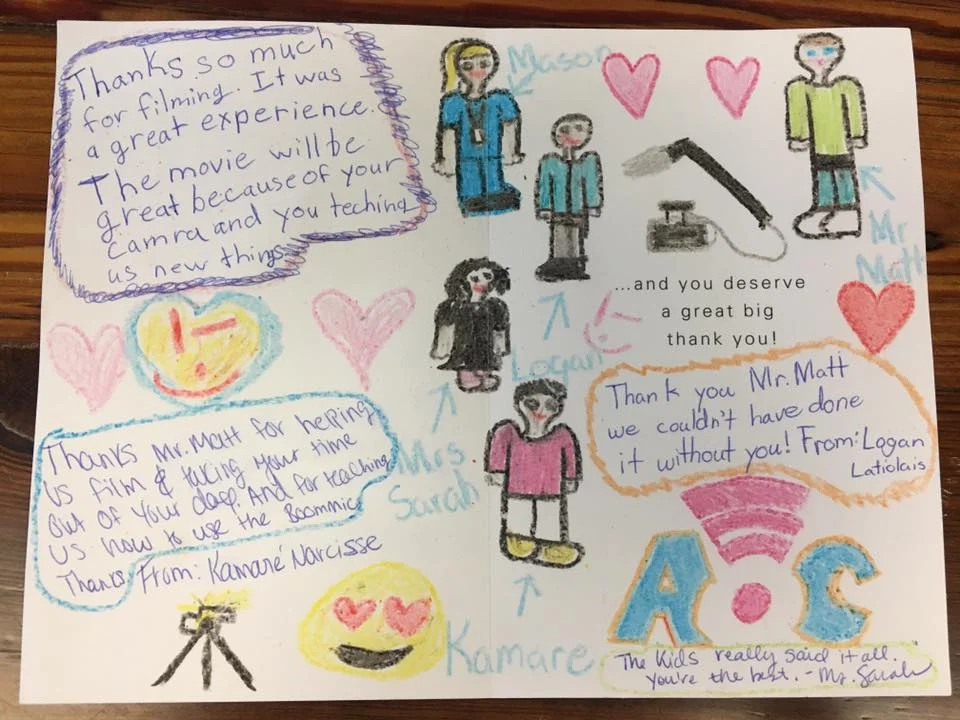 Thanks so much
for filming. It was
a great experience.
The movie will be
great because of your
camra and you teching
us new things
Mason
Mr
Matt
Logan
Mrs
Sarah
Kamare
...and you deserve
a great big
thank you!
Thank you Mr. Matt
we couldn't have done
it without you! From: Logan
Latiolais
Thanks Mr. Matt for helping
us film & taking your time
out of your day! And for teaching
us how to use the Boommic
Thanks From: Kamaré Narcisse
AOC
The Kids really said it all.
You're the best. - Ms. Sarah